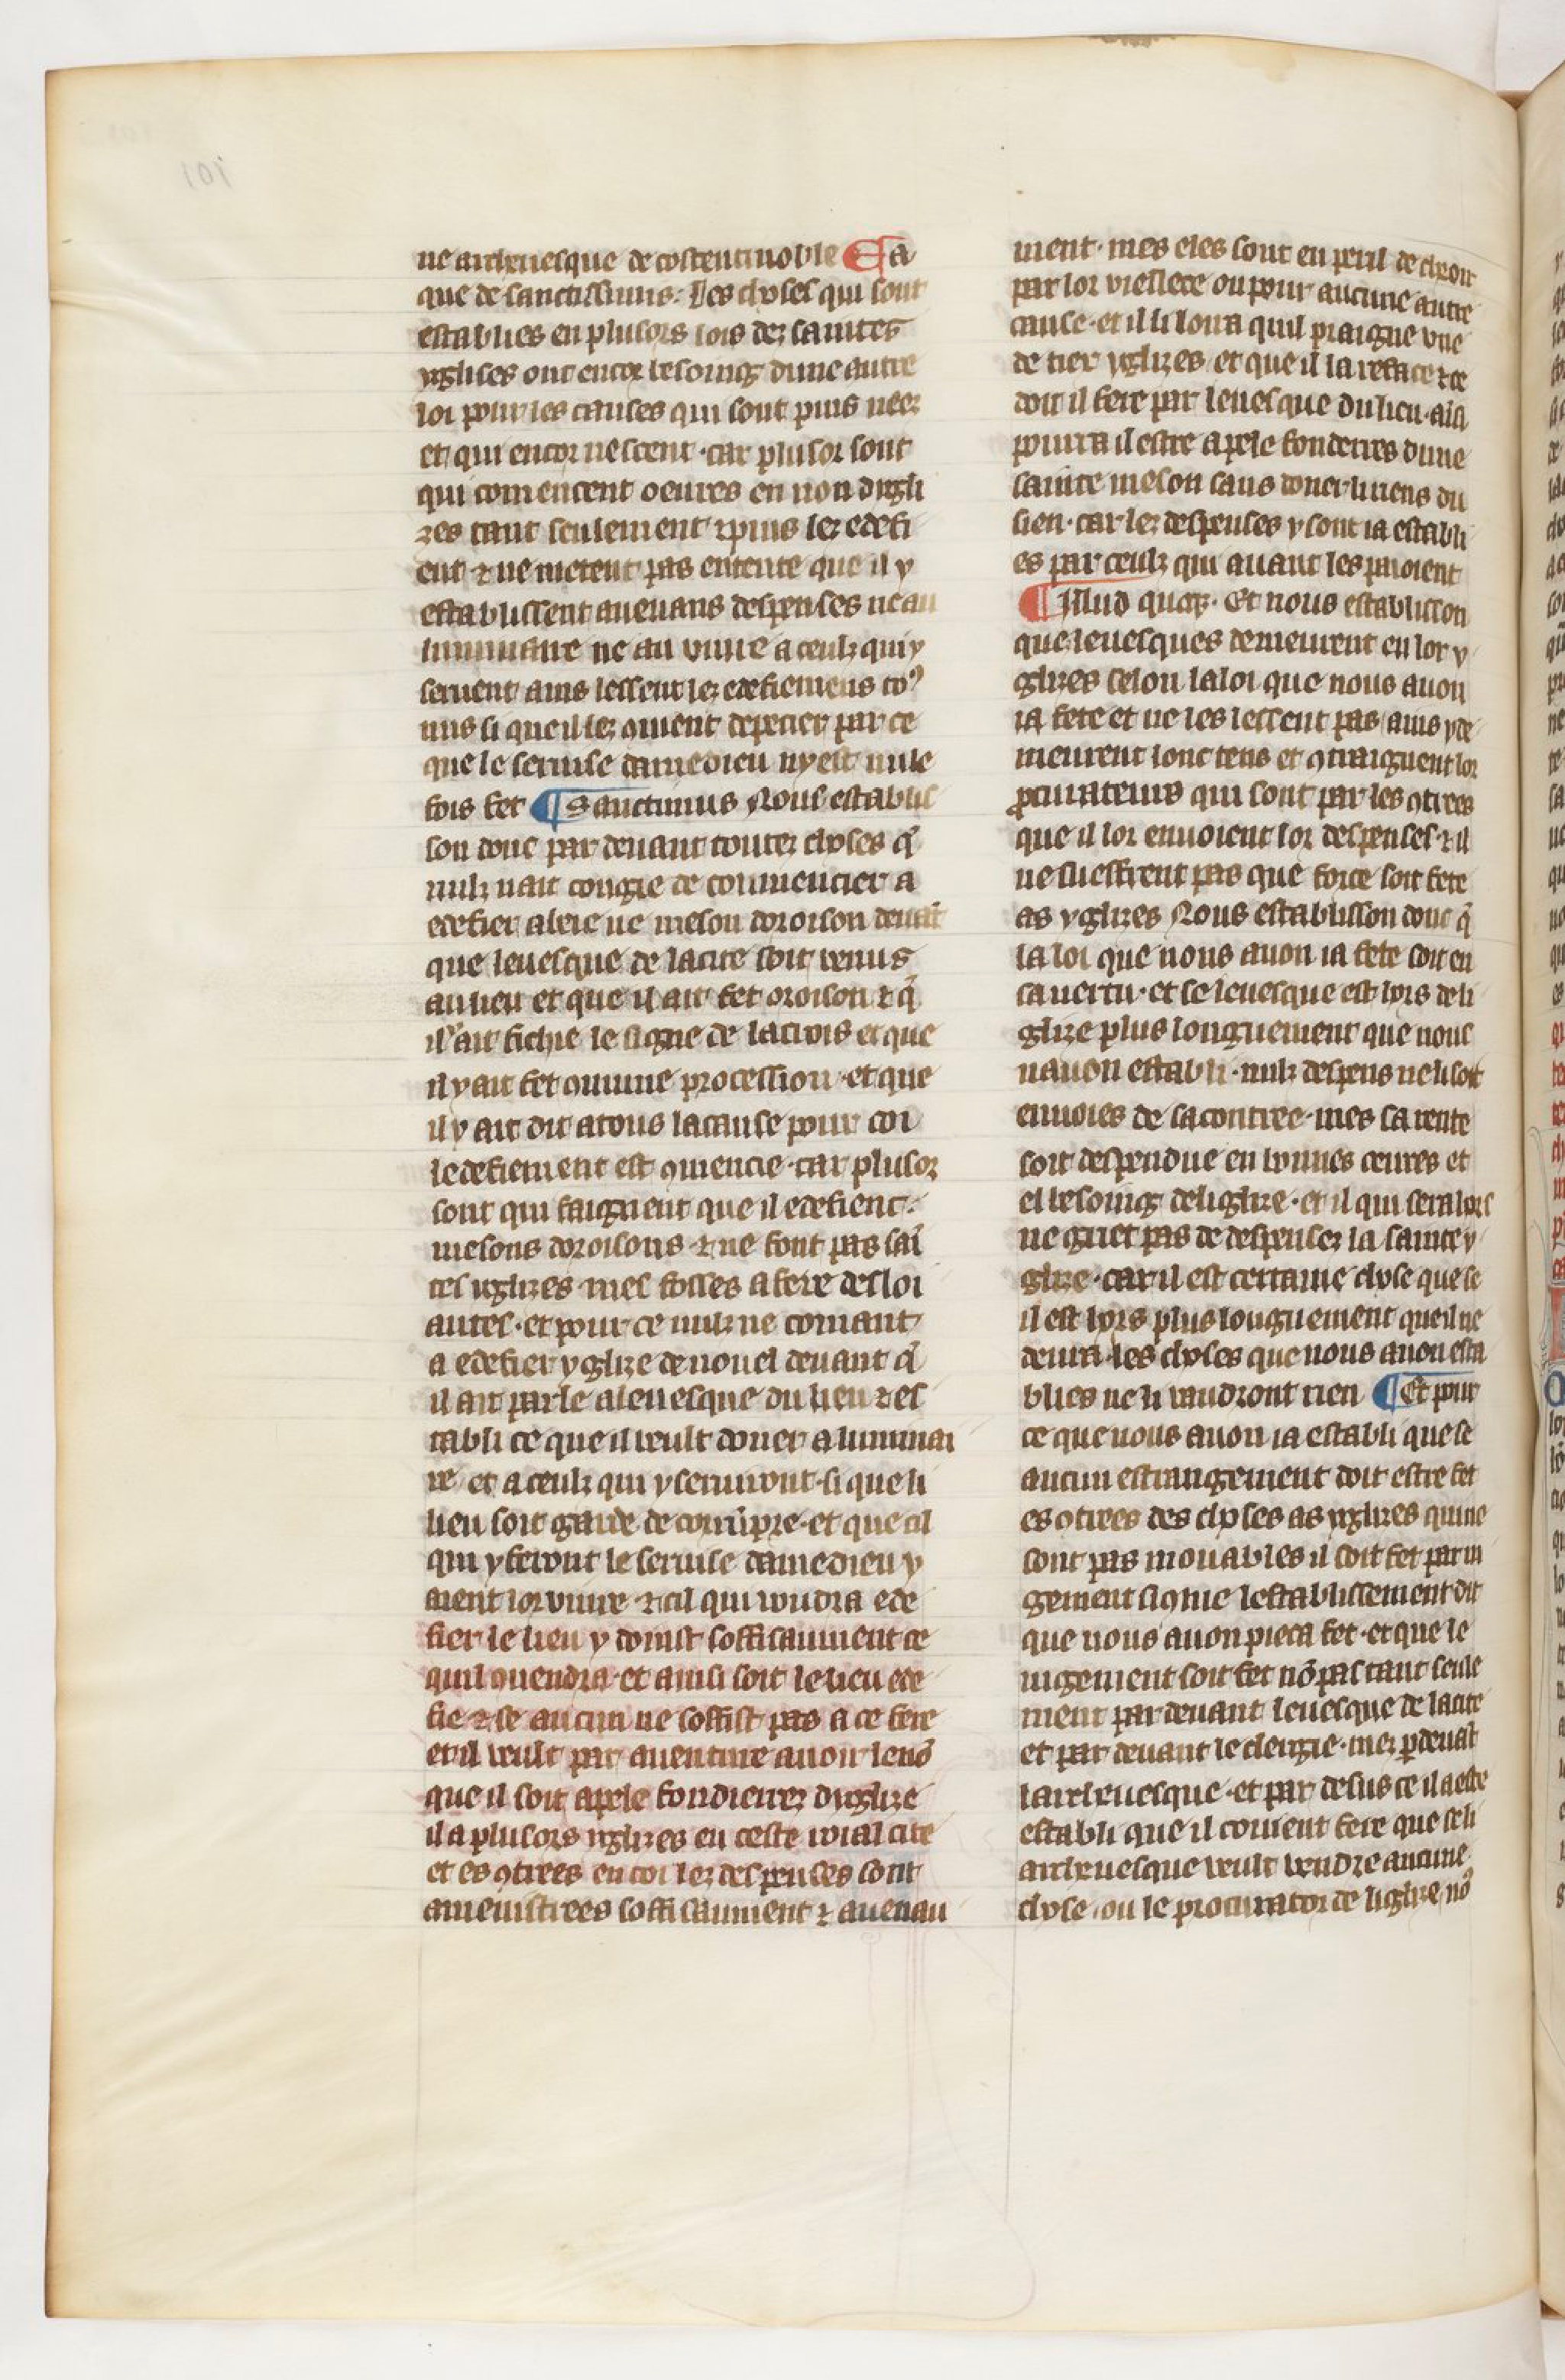 ne archeuesque de costentinoble Ea
que de sanctissimis. Les choses qui sont
establies en plusors lois dez saintes
yglises ont encor besoing dune autre
loi pour les causes qui sont puis nees
et qui encor nescent. car plusor sont
qui comencent oeures en non dygli
zes tant seulement ⁊ puis lez edefi
ent ⁊ ne metent pas entente que il y
establissent auenans despenses ne au
luminaire ne au viure a ceulz qui y
seruent ains lessent lez edefiemens co
nus si que il lez 9uient depecier par ce
que le seruise damedieu ny est nule
fois fet ¶ Sanctimus Nous establis
son donc par deuant toutez choses q̃
nulz nait congie de commencier a
edefier abeie ne meson doroison deuāt
que leuesque de la cite soit venus
au lieu et que il ait fet oroison ⁊ q̃
il ait fichie le signe de la crois et que
il y ait fet 9mune procession. et que
il y ait dit a tous la cause pour coi
ledefiement est 9mencie. car plusor
sont qui faignent que il edefient.
mesons doroisons ⁊ ne font pas sai
tes yglizes mes fosses a fere desloi
autes. et pour ce nulz ne comant
a edefier yglize de nouel deuant q̃
il ait parle a leuesque du lieu ⁊ es
tabli ce que il veult doner a luminai
re et a ceulz qui y seruiront. si que li
lieu soit garde de corrūpre. et que cil
qui y feront le seruise damedieu y
aient lor viure ⁊ cil qui voudra ede
fier le lieu y doinst soffisanment ce
quil 9uendra. et ainsi soit le lieu ede
fie ⁊ se aucun ne soffist pas a ce fere
et il veult par auenture auoir le nō
que il soit apele fondierrez dyglize
il a plusors yglizes en ceste roial cite
et es 9trees en coi lez despenses sont
amenistrees soffisanment ⁊ auenau
ment. mes eles sont en peril de cheoir
par lor viellece ou pour aucune autre
cause. et il li loira quil praigne vne
de tier yglizes et que il la reface ⁊ ce
doit il fere par leuesque du lieu. aisi
pourra il estre apele fonderres dune
sainte meson sans doner li riens du
sien. car lez despenses y sont ia establi
es par ceulz qui auant les paioient
¶ Illud quoq. Et nous establisson
que leuesques demeurent en lor y
glizes selon la loi que nous auon
ia fete et ne les lessent pas ains y de
meurent lonc tens et 9traignent lor
procurateurs qui sont par les 9trees
que il lor enuoient lor despenses ⁊ il
ne sueffrent pas que force soit fete
as yglizes Nous establisson donc q̃
la loi que nous auon ia fete soit en
sa uertu. et se leuesque est hors de li
glize plus longuement que nous
nauon establi. nulz despens ne li soit
enuoies de sa contree. mes sa rente
soit despendue en bonnes oeures et
el besoing de liglize. et il qui sera hors
ne griet pas de despenser la sainte y
glize. car il est certaine chose que se
il est hors plus longuement que il ne
deura. les choses que nous auon esta
blies ne li vaudront rien ¶ Et pour
ce que nous auon ia establi que se
aucun estrangement doit estre fet
es 9trees des choses as yglizes qui ne
sont pas mouables il soit fet par iu
gement si 9me lestablissement dit
que nous auon pieca fet. et que le
iugement soit fet nō pas tant seule
ment par deuant leuesque de la cite
et par deuant le clergie. mez p deuāt
larcheuesque. et par desus ce il a este
establi que il couient fere que se li
archeuesque veult vendre aucune
chose. ou le procurator de liglize nō